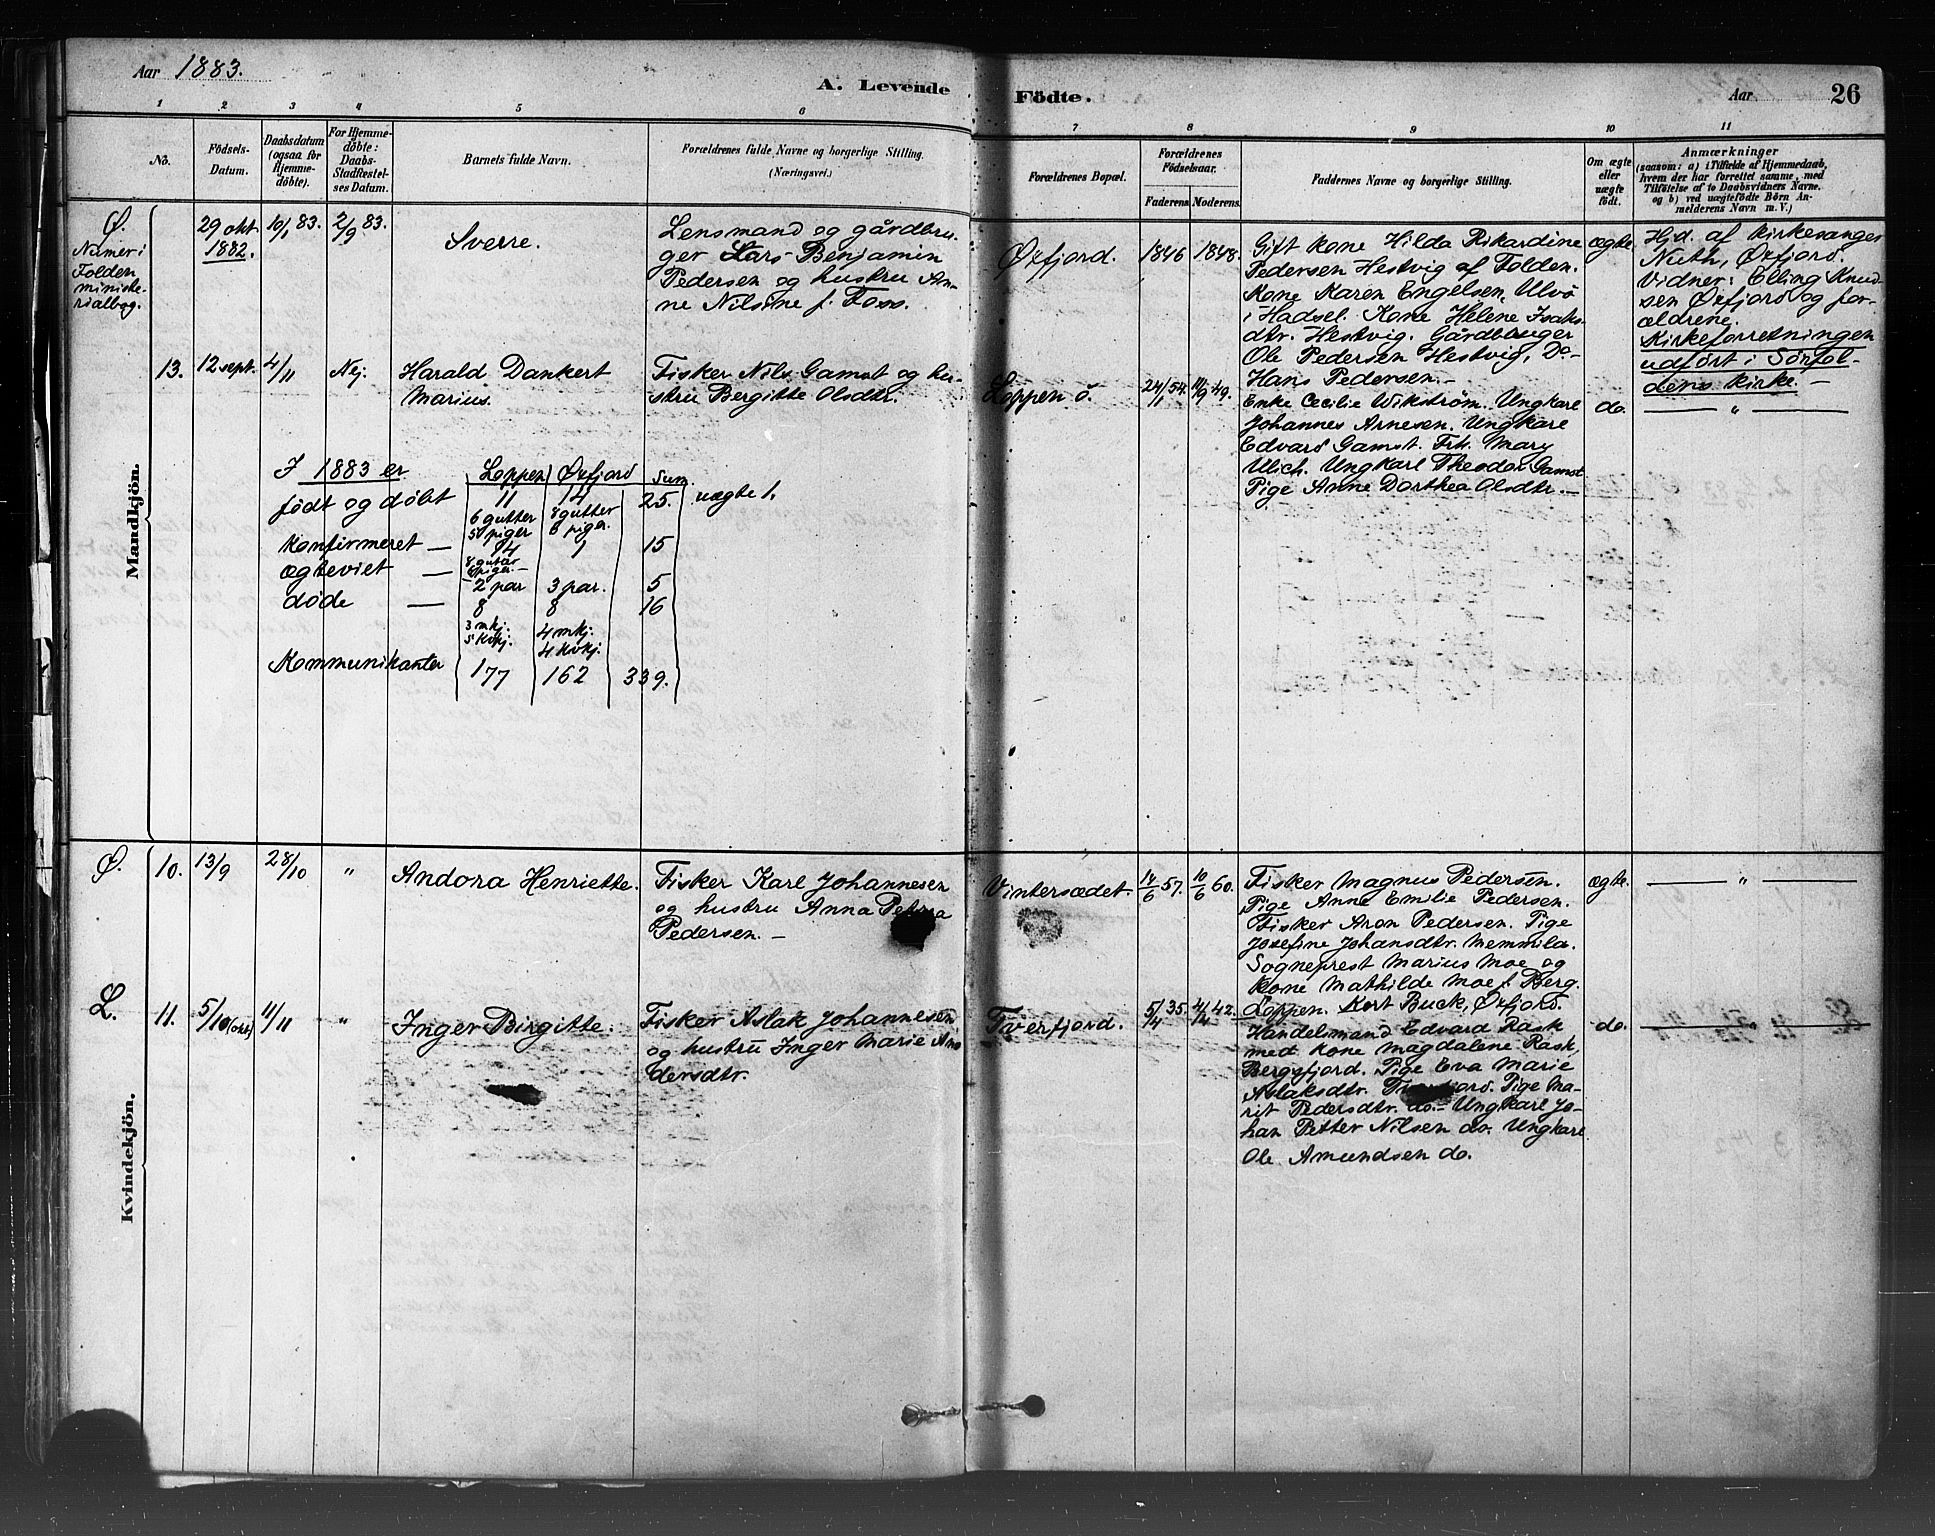 Aar 1883.
A. Levende Födte.
Aar 26
1 2 3 4 5 6 7 8 9 10 11
No.
Födsels-
Datum.
Daabsdatum
(ogsaa for
Hjemme-
döbte).
For Hjemme-
döbte:
Daabs-
Stadfæstel-
ses Datum.
Barnets fulde Navn.
Forældrenes fulde Navne og borgerlige Stilling.
(Næringsvei.)
Forældrenes Bopæl.
Forældrenes
Födselsaar.
Faderens Moderens.
Faddernes Navne og borgerlige Stilling.
Om ægte
eller
uægte
födt.
Anmærkninger
(saasom: a) i Tilfælde af Hjemmedaab,
hvem der har forrettet samme, med
Tilföielse af to Daabsvidners Navne.
og b) ved uægtefödte Börn An-
melderens Navn m. V.)
Mandkjön.
Ø.
Numer i
Folden
ministe-
rialbog.
29 okt.
1882.
10/1 83.
2/9 83.
Sverre.
Lensmand og gårdbru-
ger Lars Benjamin
Pedersen og hustru An-
ne Nilsine f. Foss.
Øxfjord.
1846
1848.
Gift kone Hilda Rikardine
Pedersen Hestvig af Folden.
Kone Karen Engelsen, Ulvö
i Hadsel. Kone Helene Isaks-
dtr. Hestvig. Gårdbruger
Ole Pedersen Hestvig, Do-
Hans Pedersen.-
ægte.
Hjd. af kirkesanger
Nuth, Øxfjord.
Vidner: Elling Knud-
sen Øxfjord og for-
ældrene.
Kirkeforretningen
udført i Sörfol-
dens kirke.-
13.
12 sept.
4/11
Nej.
Harald Dankert
Marius.
Fisker Nils Gamst og hu-
stru Bergitte Olsdtr.
Loppen ö.
24/1 54.
11/9 49.
Enke Cecilie Wikström. Ungkarl
Johannes Arnesen. Ungkarl
Edvard Gamst. Frk. Mary
Ulich. Ungkarl Theodor Gamst
Pige Anne Dorthea Olsdtr.-
do.
— " —
I 1883 er Loppen Øxfjord Sum.
født og døbt 11 14 25. uægte 1.
6 gutter 8 gutter
5 piger 6 piger.
konfirmeret — 14 1 15
8 gutter
6 piger.-
ægteviet — 2 par 3 par. 5
døde — 8 8 16
3 mkj. 4 mkj.
5 kvkj. 4 kvkj.
Kommunikanter 177 162 339.
Kvindekjön.
Ø.
10.
13/9
28/10
"
Andora Henriette.
Fisker Karl Johannesen
og hustru Anna Petrea
Pedersen.-
Vintersædet.
14/6 57.
10/6 60.
Fisker Magnus Pedersen.
Pige Anne Emilie Pedersen.
Fisker Aron Pedersen. Pige
Josefine Johansdtr. Memmila.
Sogneprest Marius Moe og
kone Mathilde Moe f. Berg.
Loppen. Kort Buck, Øxfjord.
ægte.
— " —
L.
11.
5/10 (okt)
11/11
"
Inger Birgitte.
Fisker Aslak Johannesen
og hustru Inger Marie An-
dersdtr.
Tverfjord.
5/4 35.
4/4 42.
Handelsmand Edvard Rask
med kone Magdalene Rask,
Bergsfjord. Pige Eva Marie
Aslaksdtr. Tverfjord. Pige Ma-
rit Pedersdtr. do.- Ungkarl Jo-
han Petter Nilsen do. Ungkarl
Ole Amundsen do.
do.
— " —